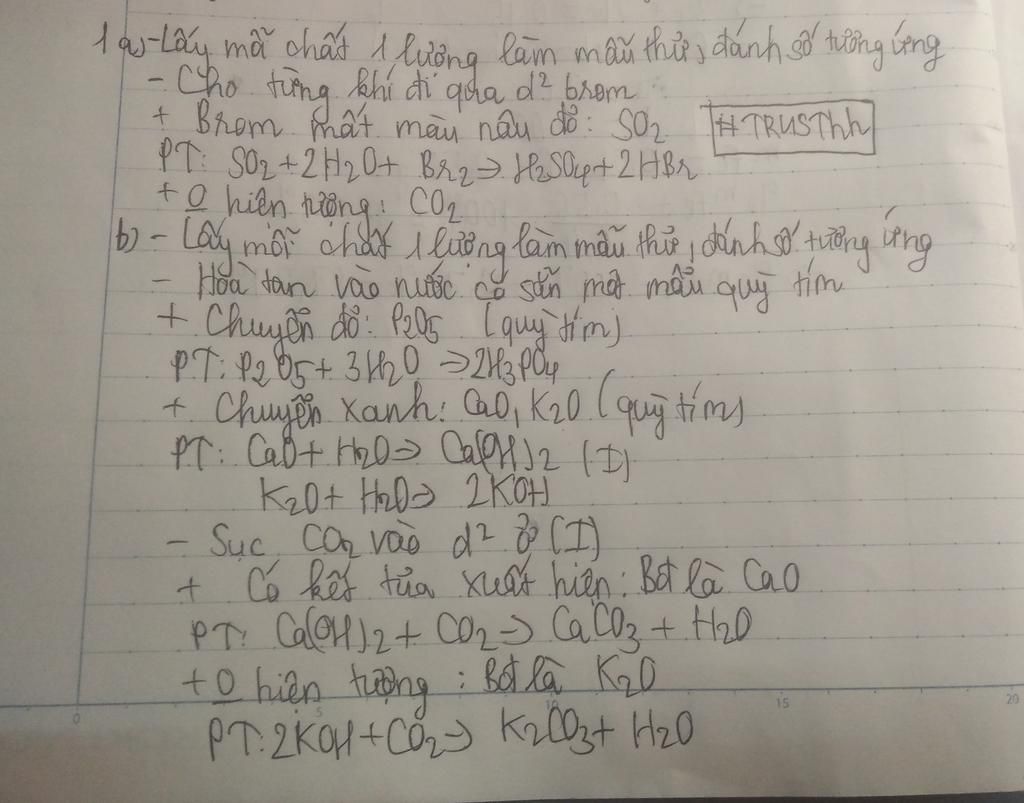 1 a) - Lấy mỗ chất 1 lượng làm mẫu thử, đánh số tương ứng
- Cho từng khí đi qua d² brom
+ Brom mất màu nâu đỏ: SO2 #TRUSThh
PT: SO2 + 2H2O + Br2 → H2SO4 + 2HBr
+ O hiện tượng: CO2
b) - Lấy mỗi chất 1 lượng làm mẫu thử, đánh số tương ứng
- Hoà tan vào nước có sẵn một mẩu quỳ tím
+ Chuyển đỏ: P2O5 (quỳ tím)
PT: P2O5 + 3H2O → 2H3PO4
+ Chuyển xanh: CaO, K2O (quỳ tím)
PT: CaO + H2O → Ca(OH)2 (I)
K2O + H2O → 2KOH
- Sục CO2 vào d² ở (I)
+ Có kết tủa xuất hiện: Bột là CaO
PT: Ca(OH)2 + CO2 → CaCO3 + H2O
+ O hiện tượng: Bột là K2O
0 5 10 15 20
PT: 2KOH + CO2 → K2CO3 + H2O